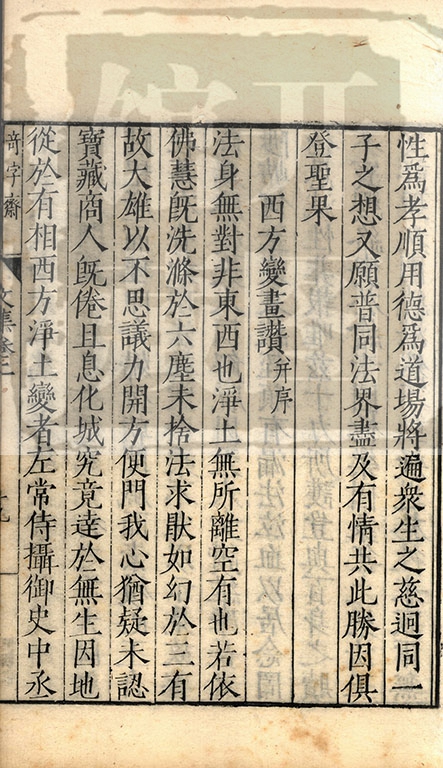 性爲孝順用德爲道場將遍衆生之慈迴同一
子之想又願普同法界盡及有情共此勝因俱
登聖果
西方變畫讚并序
法身無對非東西也淨土無所離空有也若依
佛慧旣洗滌於六塵未捨法求猒如幻於三有
故大雄以不思議力開方便門我心猶疑未認
寶藏商人旣倦且息化城究竟達於無生因地
從於有相西方淨土變者左常侍攝御史中丞
奇字齋
文集卷